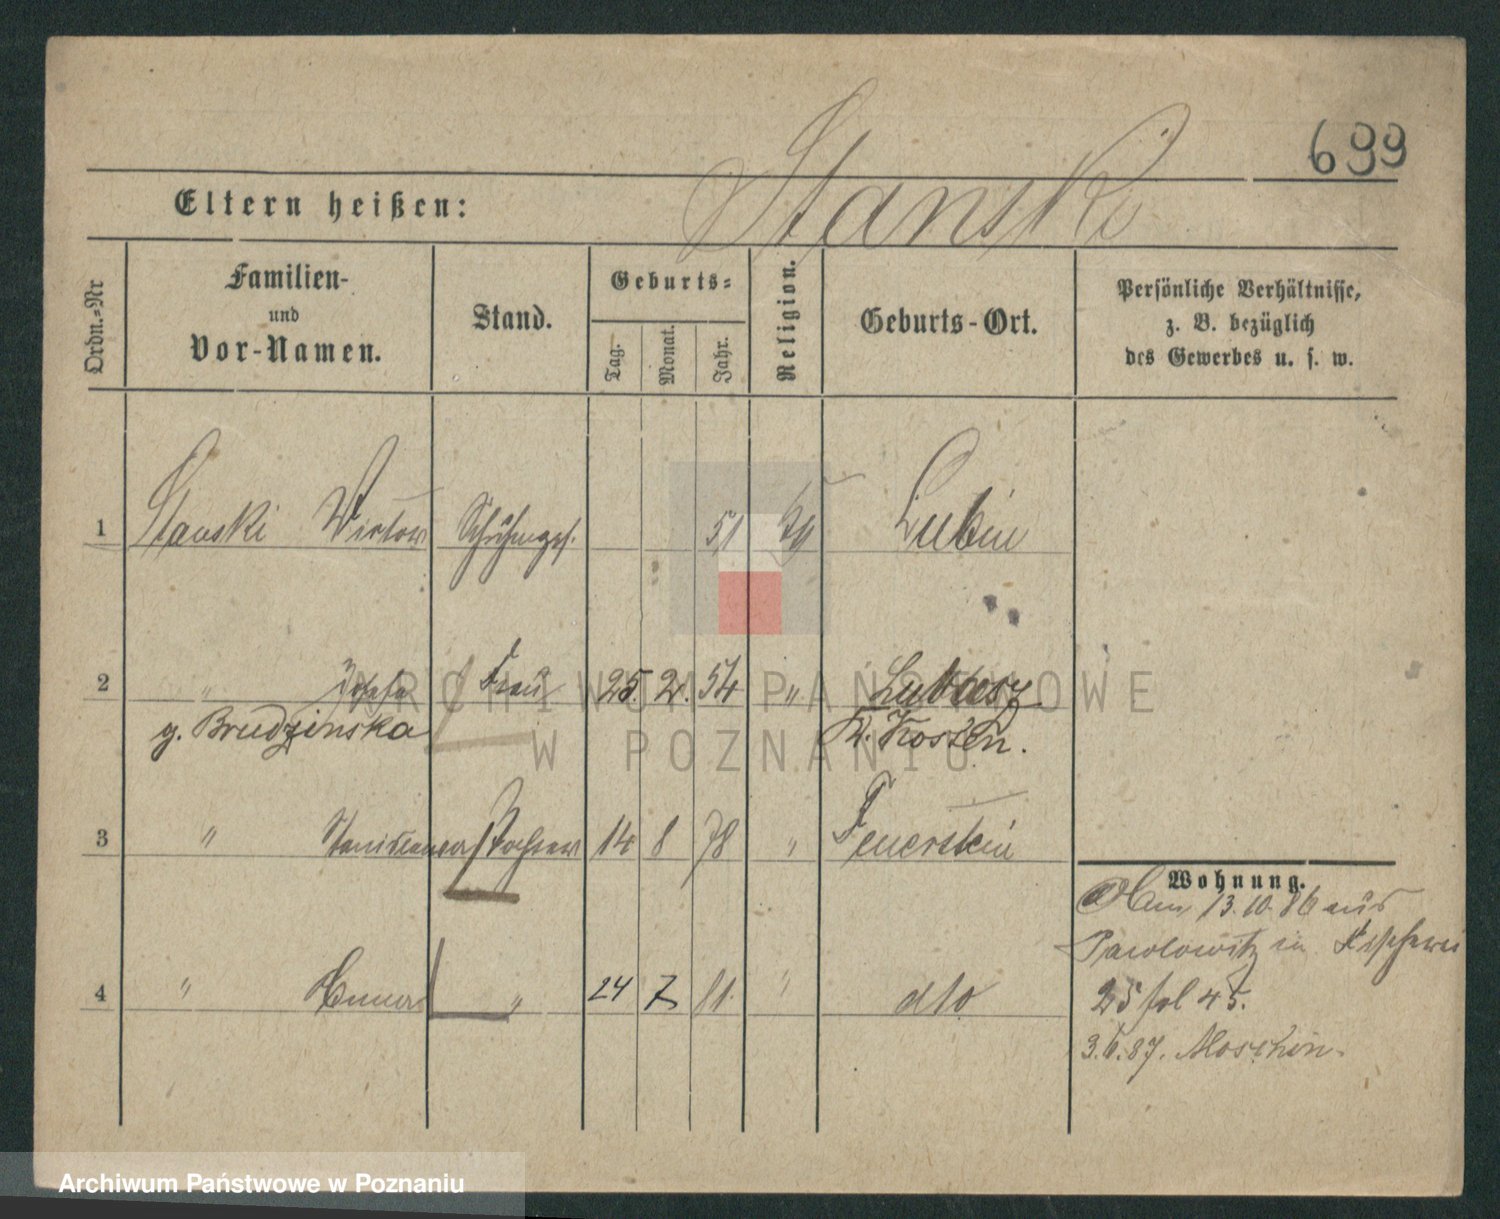 699
Stanski
Eltern heißen:
Ordn.-Nr
Familien-
und
Vor-Namen.
Stand.
Geburts-
Tag.
Monat.
Jahr.
Religion.
Geburts-Ort.
Persönliche Verhältnisse,
z. B. bezüglich
des Gewerbes u. s. w.
1 Stanski 51 Lubin
2 " Josefa Frau 25. 2. 54 " Lubosz
g. Brudzinska K. Kosten.
3 " Stanislawa Tochter 14 8 78 " Feuerstein
4 " " 24 7 81. " dto
Wohnung.
13.10.86 aus
Pawlowitz in
25 fol 45.
3.6.87. Moschin.
ARCHIWUM PAŃSTWOWE
W POZNANIU
Archiwum Państwowe w Poznaniu